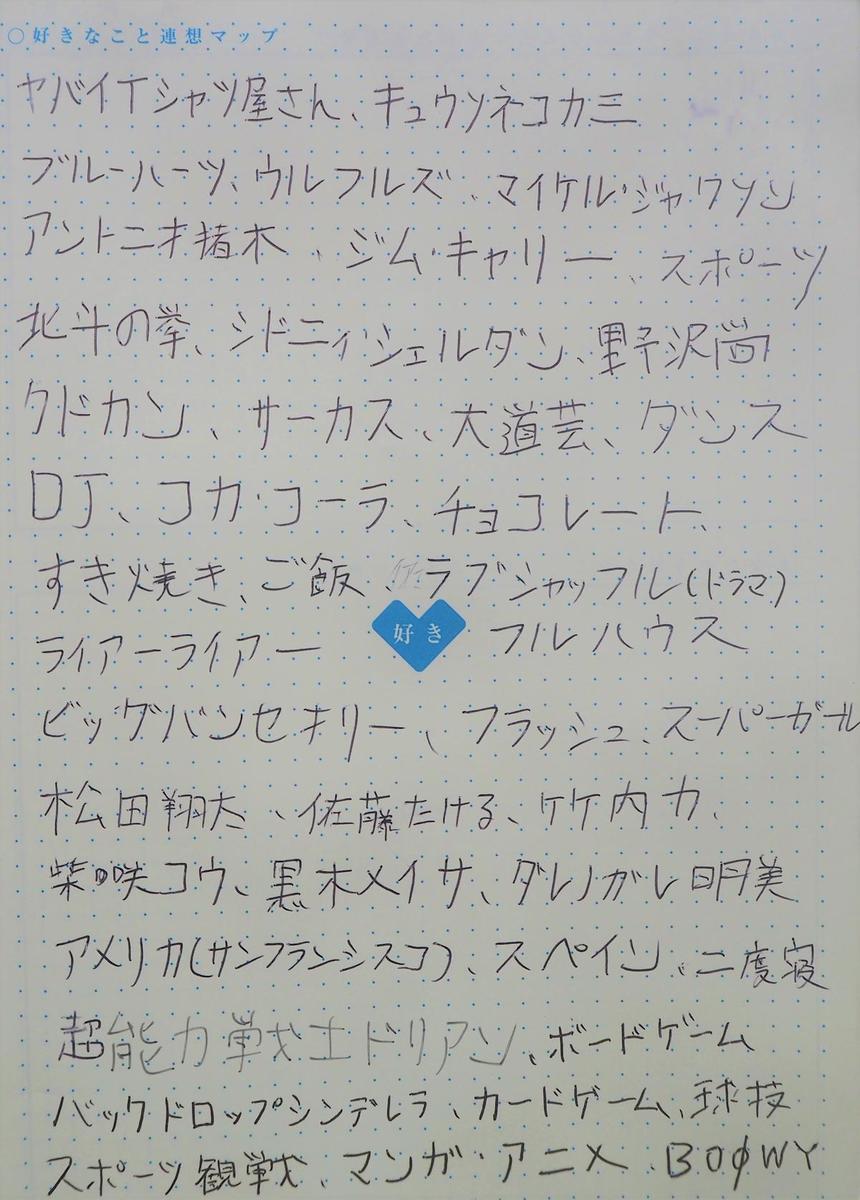 ○好きなこと連想マップ
ヤバイTシャツ屋さん、キュウソネコカミ
ブルーハーツ、ウルフルズ、マイケル・ジャクソン
アントニオ猪木、ジム・キャリー、スポーツ
北斗の拳、シドニィ・シェルダン、野沢尚
クドカン、サーカス、大道芸、ダンス
DJ、コカ・コーラ、チョコレート、
すき焼き、ご飯、ラブシャッフル(ドラマ)
ライアーライアー 好き フルハウス
ビッグバンセオリー、フラッシュ、スーパーガール
松田翔太、佐藤たける、竹内力、
柴咲コウ、黒木メイサ、ダレノガレ明美
アメリカ(サンフランシスコ)、スペイン、二度寝
超能力戦士ドリアン、ボードゲーム
バックドロップシンデレラ、カードゲーム、球技
スポーツ観戦、マンガ・アニメ、BOØWY